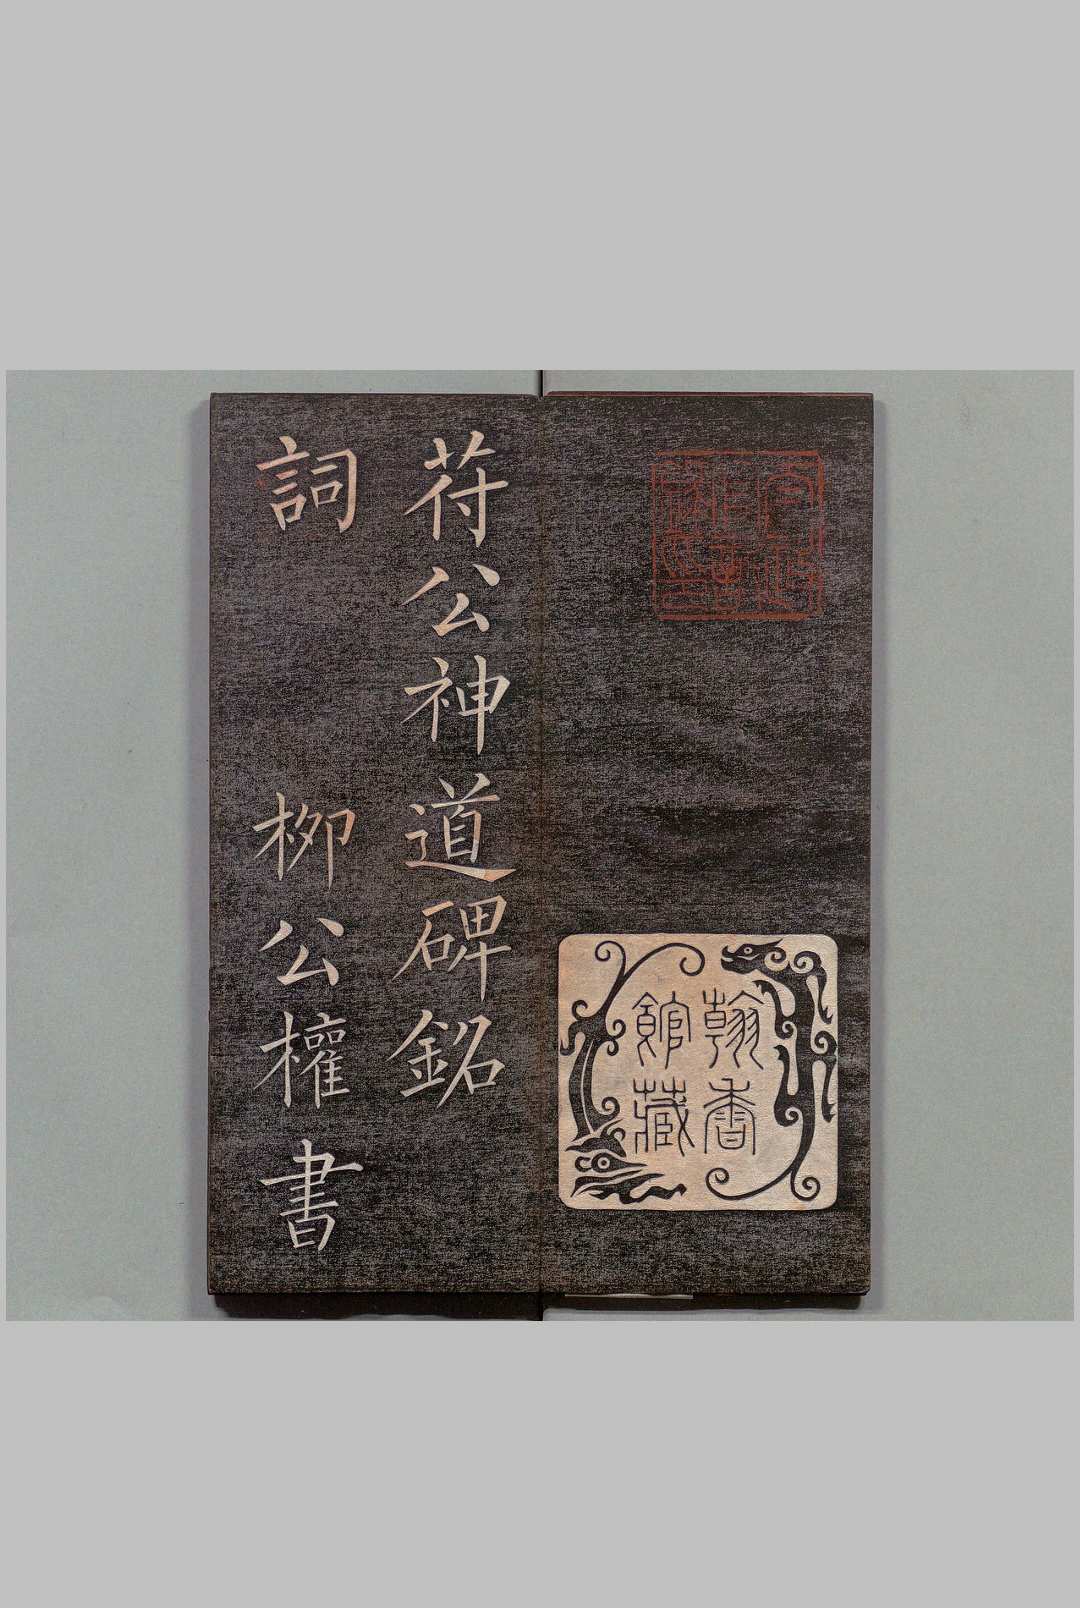 翰香
館藏
苻公神道碑銘
詞 柳公權書